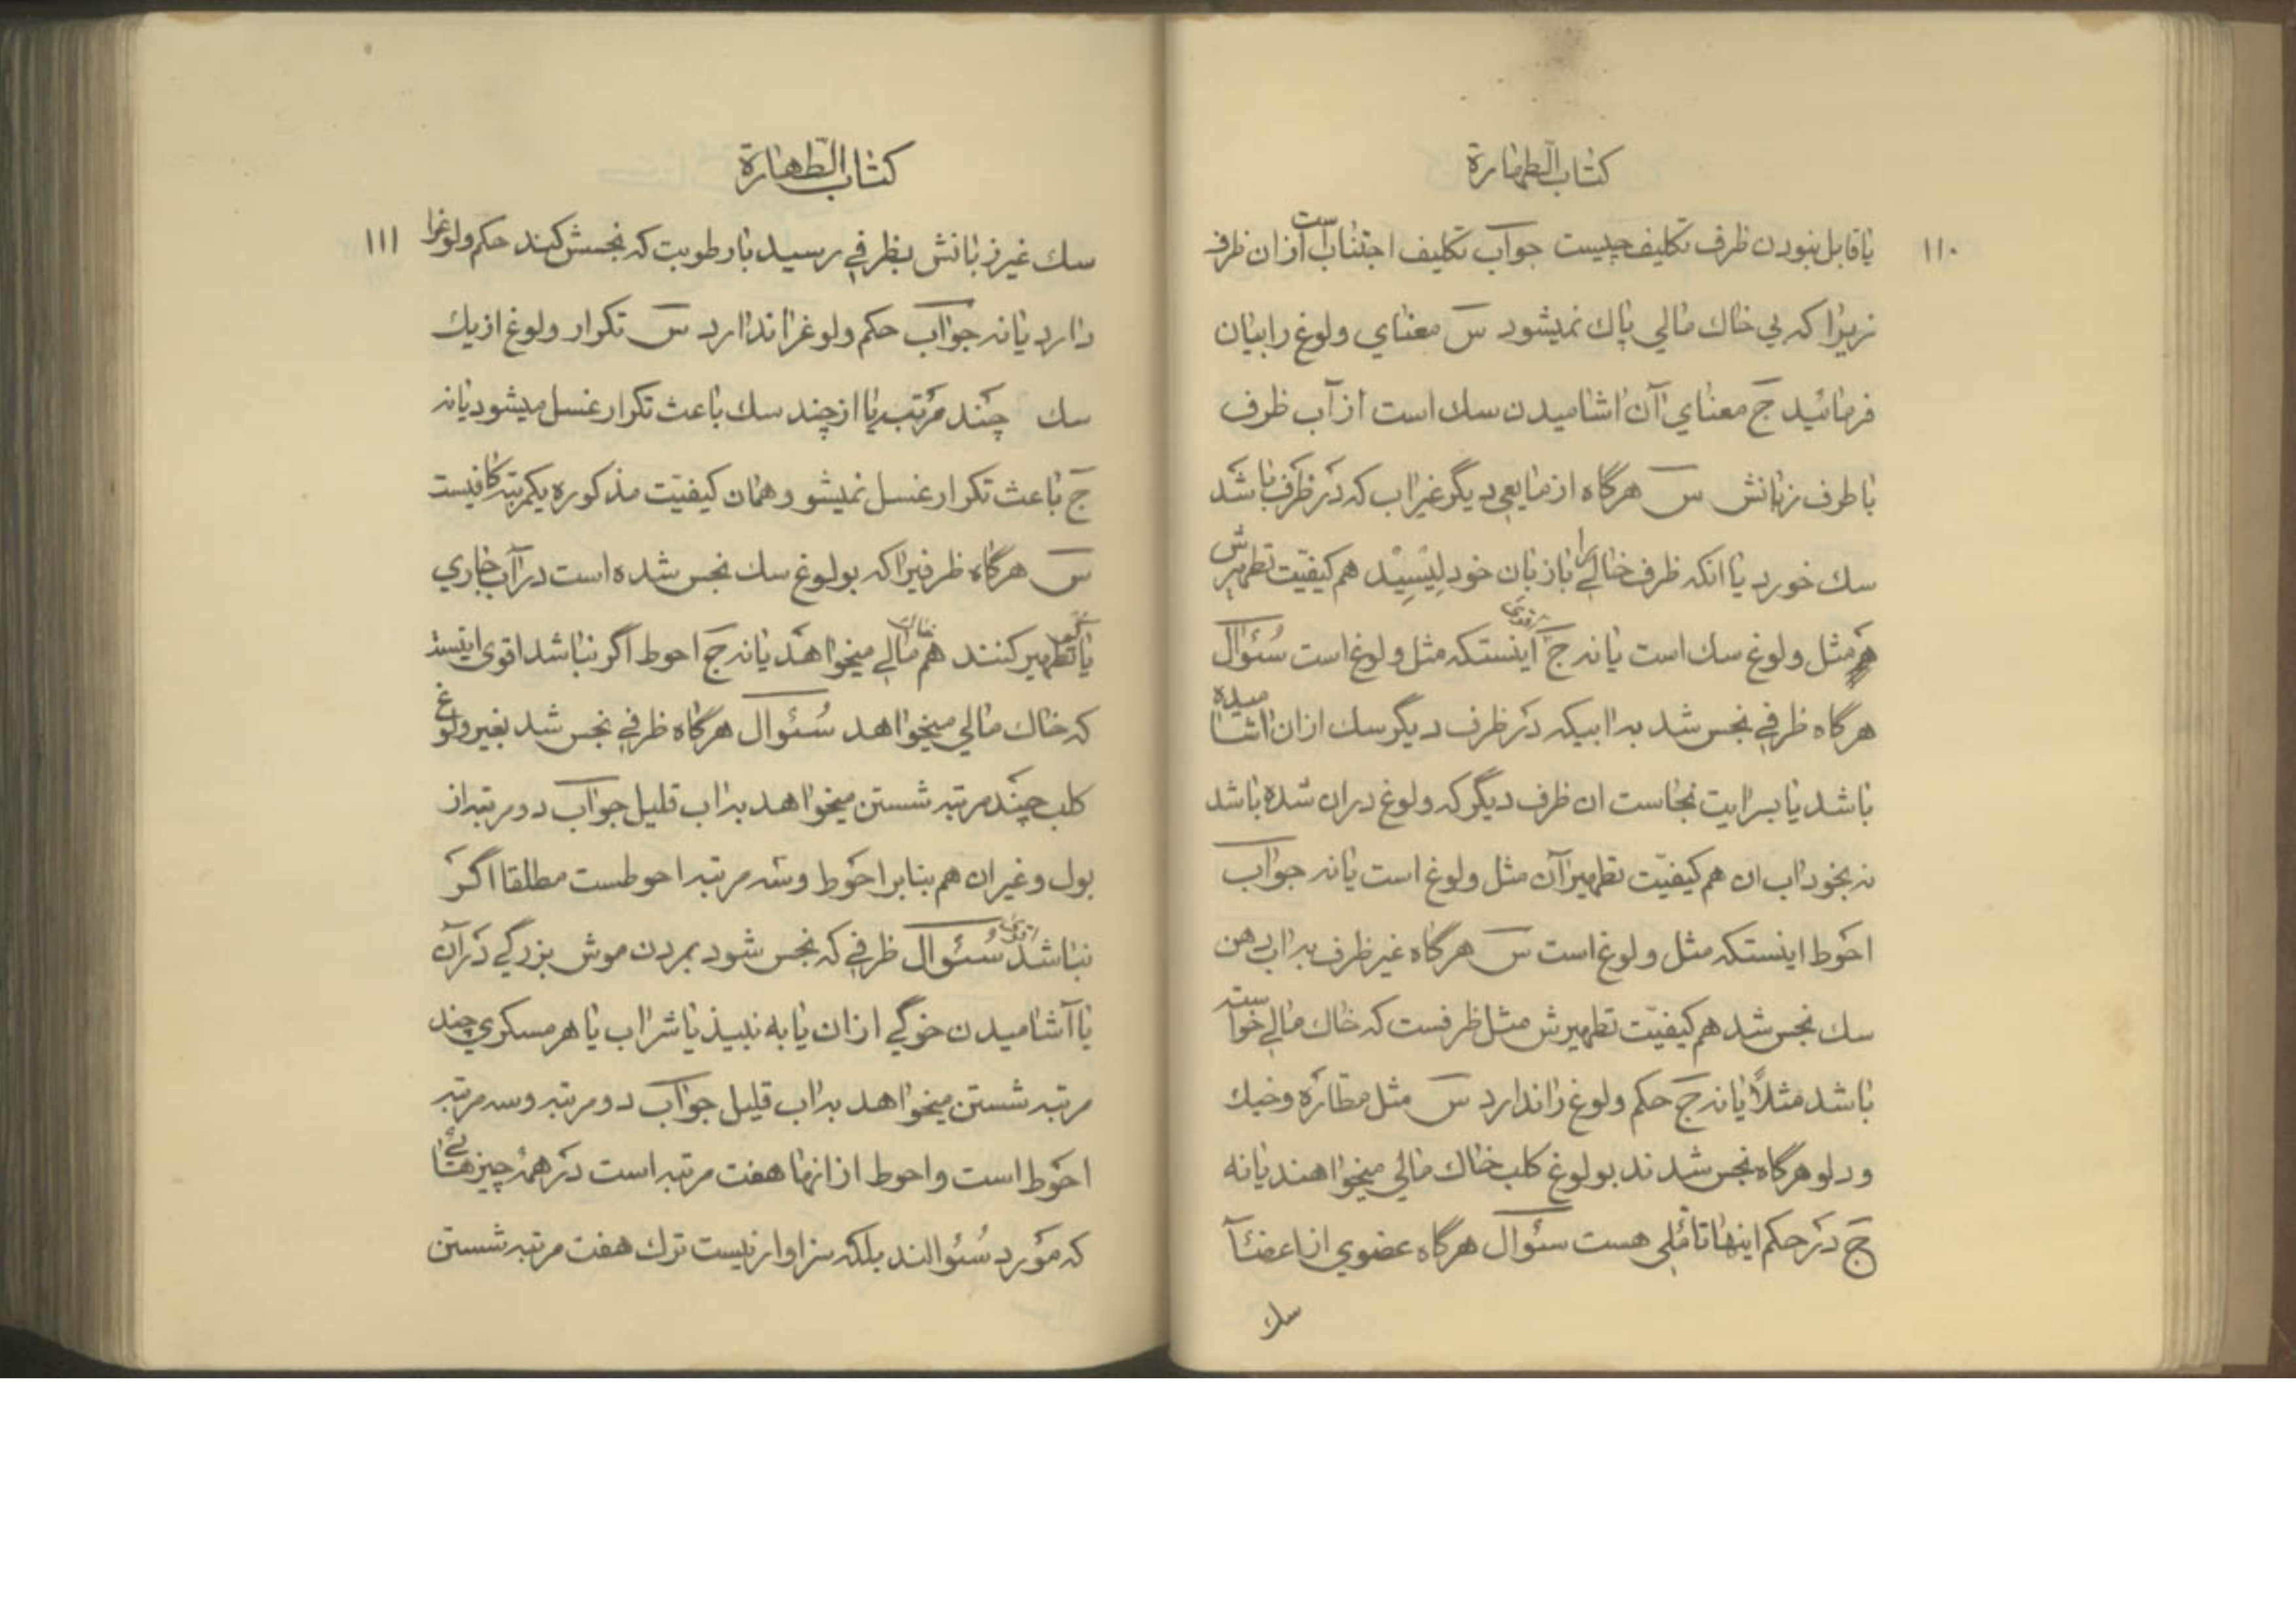 كتاب الطهارة
١١٠
يا قابل نبودن ظرف تكليف چيست جواب تكليف اجتنابست از ان ظرف
زيرا كه بي خاك مالي پاك نميشود س معناي ولوغ را بيان
فرمائيد ج معناي آن اشاميدن سك است از آب ظرف
با طرف زبانش س هرگاه از مايعي ديگر غير اب كه در ظرف باشد
سك خورد يا انكه ظرف خاليرا با زبان خود ليسيد هم كيفيت تطهيرش
مثل ولوغ سك است يا نه ج اقوى اينستكه مثل ولوغ است سئوال
هرگاه ظرفي نجس شد به ابيكه در ظرف ديگر سك ازان اشاميده
باشد يا بسرايت نجاست ان ظرف ديگر كه ولوغ دران شده باشد
نه بخود اب ان هم كيفيت تطهير آن مثل ولوغ است يا نه جواب
احوط اينستكه مثل ولوغ است س هرگاه غير ظرف به اب دهن
سك نجس شد هم كيفيت تطهيرش مثل ظرفست كه خاك مالي خواسته
باشد مثلاً يا نه ج حكم ولوغ را ندارد س مثل مطاره و خيك
و دلو هرگاه نجس شدند بولوغ كلب خاك مالي ميخواهند يا نه
ج در حكم اينها تأملي هست سئوال هرگاه عضوي از اعضآ
سك
كتاب الطهارة
١١١
سك غير زبانش بظرفي رسيد با رطوبت كه نجسش كند حكم ولوغرا
دارد يا نه جواب حكم ولوغرا ندارد س تكرار ولوغ از يك
سك چند مرتبه يا از چند سك باعث تكرار غسل ميشود يا نه
ج باعث تكرار غسل نميشود و همان كيفيت مذكوره يكمرتبه كافيست
س هرگاه ظرفيرا كه بولوغ سك نجس شده است در آب جاري
يا تطهير كنند هم خاك مالي ميخواهد يا نه ج احوط اگر نباشد اقوى اينست
كه خاك مالي ميخواهد سئوال هرگاه ظرفي نجس شد بغير ولوغ
كلب چند مرتبه شستن ميخواهد به اب قليل جواب دو مرتبه از
بول و غير ان هم بنابر احوط و سه مرتبه احوطست مطلقا اگر
نباشد اقوى سئوال ظرفي كه نجس شود بمردن موش بزرگي در آن
يا آشاميدن خوگي ازان يا به نبيذ يا شراب يا هر مسكري چند
مرتبه شستن ميخواهد به اب قليل جواب دو مرتبه و سه مرتبه
احوط است و احوط از انها هفت مرتبه است در همه چيزهائي
كه مورد سئوالند بلكه سزاوار نيست ترك هفت مرتبه شستن